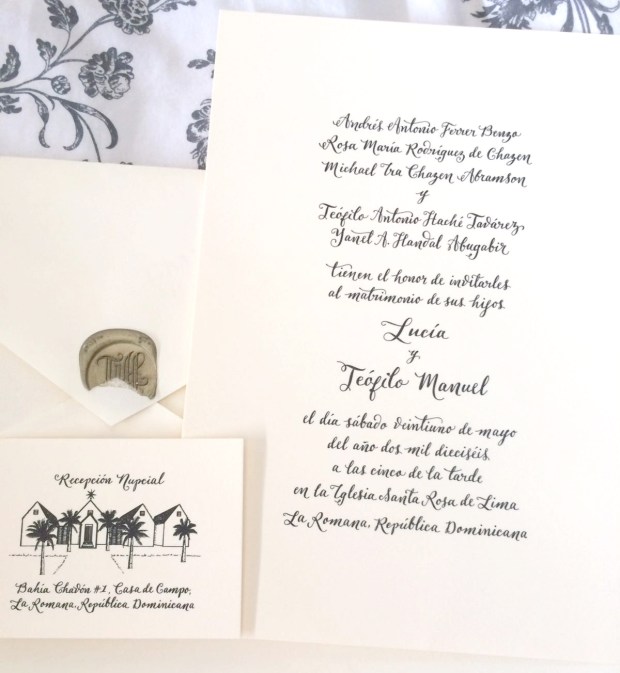 Andrés Antonio Ferrer Benzo
Rosa María Rodríguez de Chazen
Michael Ira Chazen Abramson
y
Teófilo Antonio Haché Tavárez
Yanet A. Handal Abugabir
tienen el honor de invitarles
al matrimonio de sus hijos
Lucía
y
Teófilo Manuel
el día sábado veintiuno de mayo
del año dos mil dieciséis
a las cinco de la tarde
en la Iglesia Santa Rosa de Lima
La Romana, República Dominicana
Recepción Nupcial
Bahia Chavón #1, Casa de Campo,
La Romana, República Dominicana